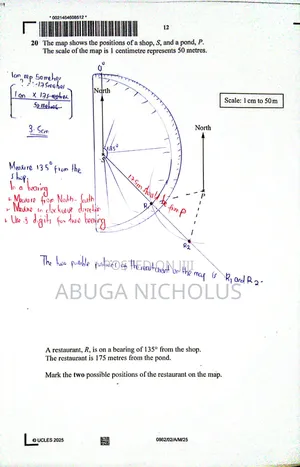 * 0021404508512 *
12
20 The map shows the positions of a shop, S, and a pond, P.
The scale of the map is 1 centimetre represents 50 metres.
1cm rep 50 meter
? - 175 meter
1cm × 175 meter
50 meter
3.5cm
0°
North
Scale: 1 cm to 50 m
North
135°
S
Measure 135° from the
shop.
In a bearing
Measure from North - South
Measure in clockwise direction
Use 3 digits for three bearing
from P
R1
P
R2
The two possible positions of the restaurant on the map is R1 and R2.
POSTED ON
ABUGA NICHOLUS
A restaurant, R, is on a bearing of 135° from the shop.
The restaurant is 175 metres from the pond.
Mark the two possible positions of the restaurant on the map.
© UCLES 2025
0862/02/A/M/25